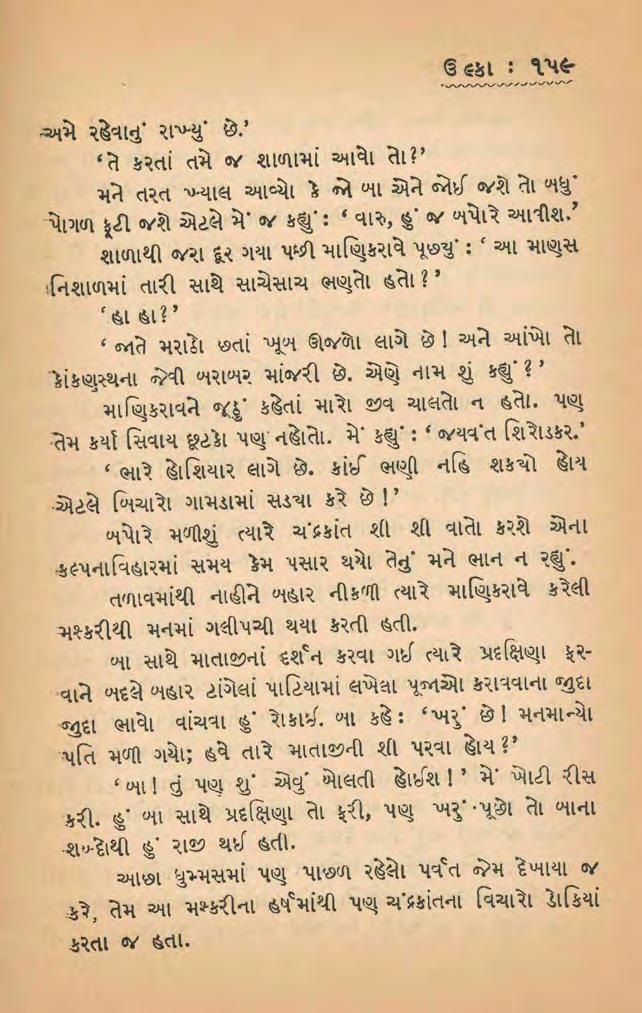 ઉલ્કા : ૧૫૯
અમે રહેવાનું રાખ્યું છે.’
‘તે કરતાં તમે જ શાળામાં આવો તો?’
મને તરત ખ્યાલ આવ્યો કે જો બા એને જોઈ જશે તો બધું
પોગળ ફૂટી જશે એટલે મેં જ કહ્યું : ‘વારુ, હું જ બપોરે આવીશ.’
શાળાથી જરા દૂર ગયા પછી માણિકરાવે પૂછ્યું : ‘આ માણસ
નિશાળમાં તારી સાથે સાચેસાચ ભણતો હતો?’
‘હા હા?’
‘જાતે મરાઠો છતાં ખૂબ ઊજળો લાગે છે! અને આંખો તો
કોંકણસ્થના જેવી બરાબર માંજરી છે. એણે નામ શું કહ્યું?’
માણિકરાવને જૂઠું કહેતાં મારો જીવ ચાલતો ન હતો. પણ
તેમ કર્યા સિવાય છૂટકો પણ નહોતો. મેં કહ્યું : ‘જયવંત શિરોડકર.’
‘ભારે હોશિયાર લાગે છે. કાંઈ ભણી નહિ શક્યો હોય
એટલે બિચારો ગામડામાં સડ્યા કરે છે!’
બપોરે મળીશું ત્યારે ચંદ્રકાંત શી શી વાતો કરશે એના
કલ્પનાવિહારમાં સમય કેમ પસાર થયો તેનું મને ભાન ન રહ્યું.
તળાવમાંથી નાહીને બહાર નીકળી ત્યારે માણિકરાવે કરેલી
મશ્કરીથી મનમાં ગલીપચી થયા કરતી હતી.
બા સાથે માતાજીનાં દર્શન કરવા ગઈ ત્યારે પ્રદક્ષિણા ફર-
વાને બદલે બહાર ટાંગેલાં પાટિયામાં લખેલા પૂજાઓ કરાવવાના જુદા
જુદા ભાવો વાંચવા હું રોકાઈ. બા કહે : ‘ખરું છે! મનમાન્યો
પતિ મળી ગયો; હવે તારે માતાજીની શી પરવા હોય?’
‘બા! તું પણ શું એવું બોલતી હોઈશ!’ મેં ખોટી રીસ
કરી. હું બા સાથે પ્રદક્ષિણા તો ફરી, પણ ખરું પૂછો તો બાના
શબ્દોથી હું રાજી થઈ હતી.
આછા ધુમ્મસમાં પણ પાછળ રહેલો પર્વત જેમ દેખાયા જ
કરે, તેમ આ મશ્કરીના હર્ષમાંથી પણ ચંદ્રકાંતના વિચારો ડોકિયાં
કરતા જ હતા.